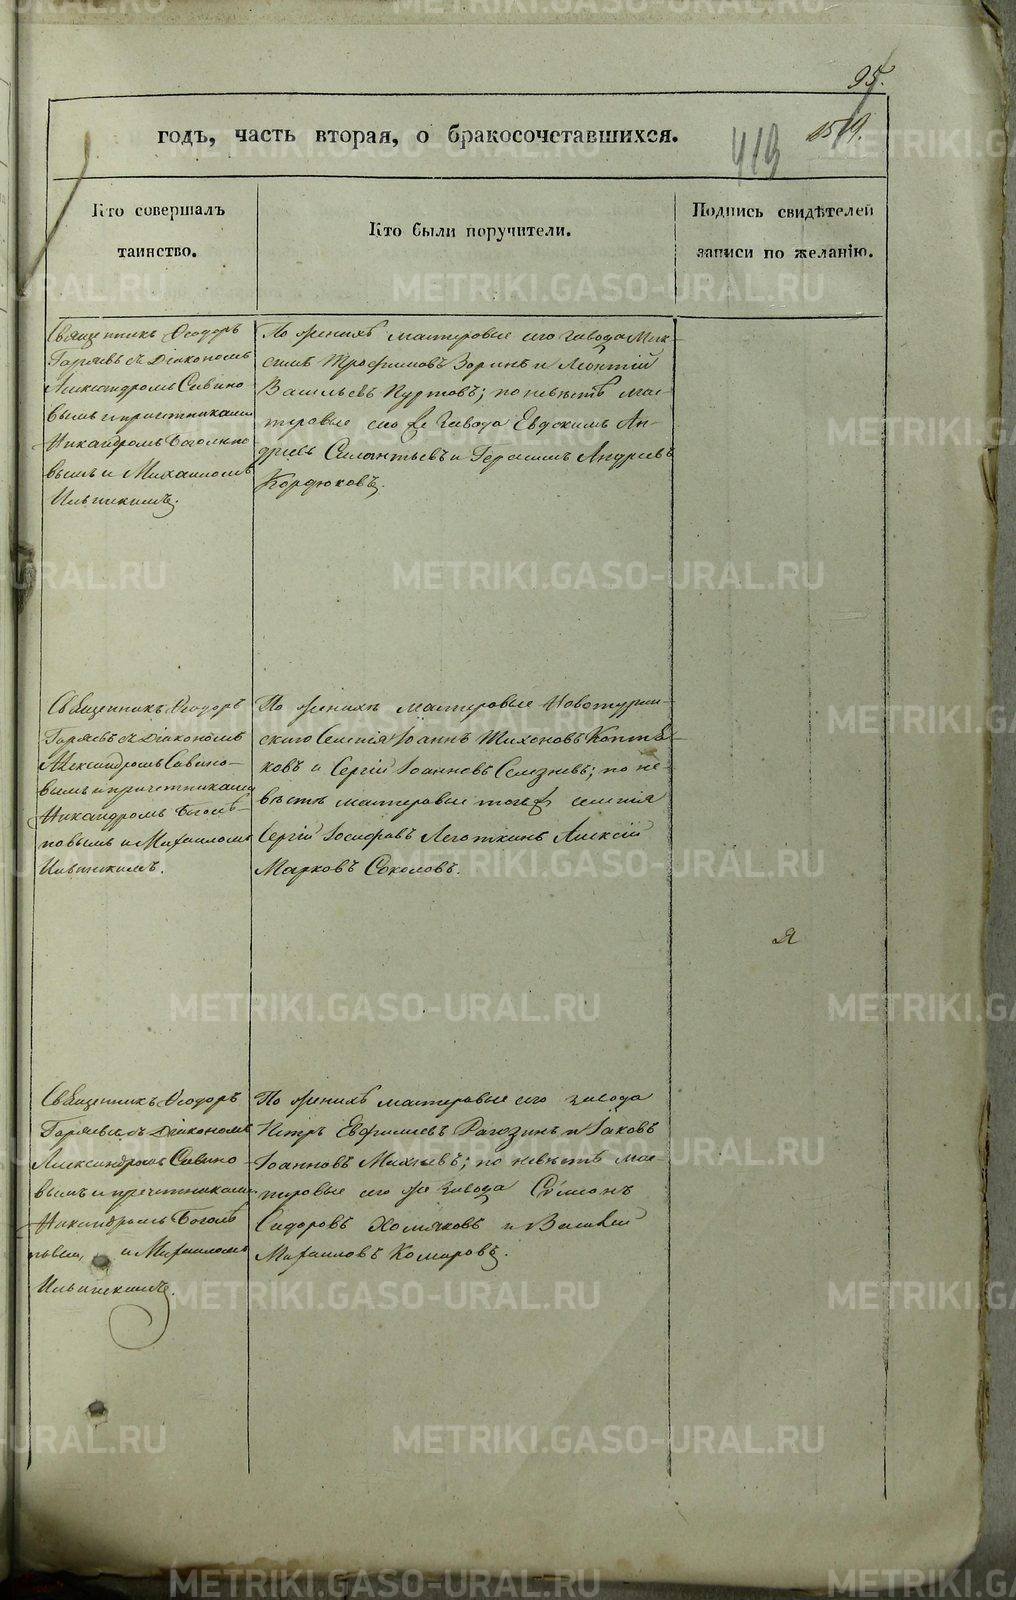 95.
годъ, часть вторая, о бракосочетавшихся.
413
1519.
Кто совершалъ
таинство.
Кто были поручители.
Подпись свидѣтелей
записи по желанію.
Священникъ Ѳеодоръ
Гаряевъ съ Діакономъ
Александромъ Савино
вымъ и причетниками
Никандромъ Боголѣпо
вымъ и Михаиломъ
Ильинскимъ.
По женихѣ мастеровые сего завода Мак-
симъ Трофимовъ Зоринъ и Леонтій
Васильевъ Куртовъ; по невѣстѣ мас-
теровые сего же завода Евдокимъ Ан-
дреевъ Силантьевъ и Герасимъ Андреевъ
Кордюковъ.
Священникъ Ѳеодоръ
Гаряевъ съ Діакономъ
Александромъ Савино-
вымъ и причетниками
Никандромъ Боголѣ-
повымъ и Михаиломъ
Ильинскимъ.
По женихѣ мастеровые Новотурин-
скаго селенія Іоаннъ Тихоновъ Коптѣ-
ковъ и Сергій Іоанновъ Селезневъ; по не-
вѣстѣ мастеровые того же селенія
Сергій Іосифовъ Леготкинъ Алексій
Марковъ Соколовъ.
Священникъ Ѳеодоръ
Гаряевъ съ Діакономъ
Александромъ Савино-
вымъ и причетниками
Никандромъ Боголѣ
и Михаиломъ
Ильинскимъ.
По женихѣ мастеровые сего завода
Петръ Евфимиевъ Рагозинъ и Іаковъ
Іоанновъ Михѣевъ; по невѣстѣ мас-
теровые сего же завода Сѵмеонъ
Сидоровъ Хомяковъ и Василій
Михаиловъ Комаровъ.
METRIKI.GASO-URAL.RU